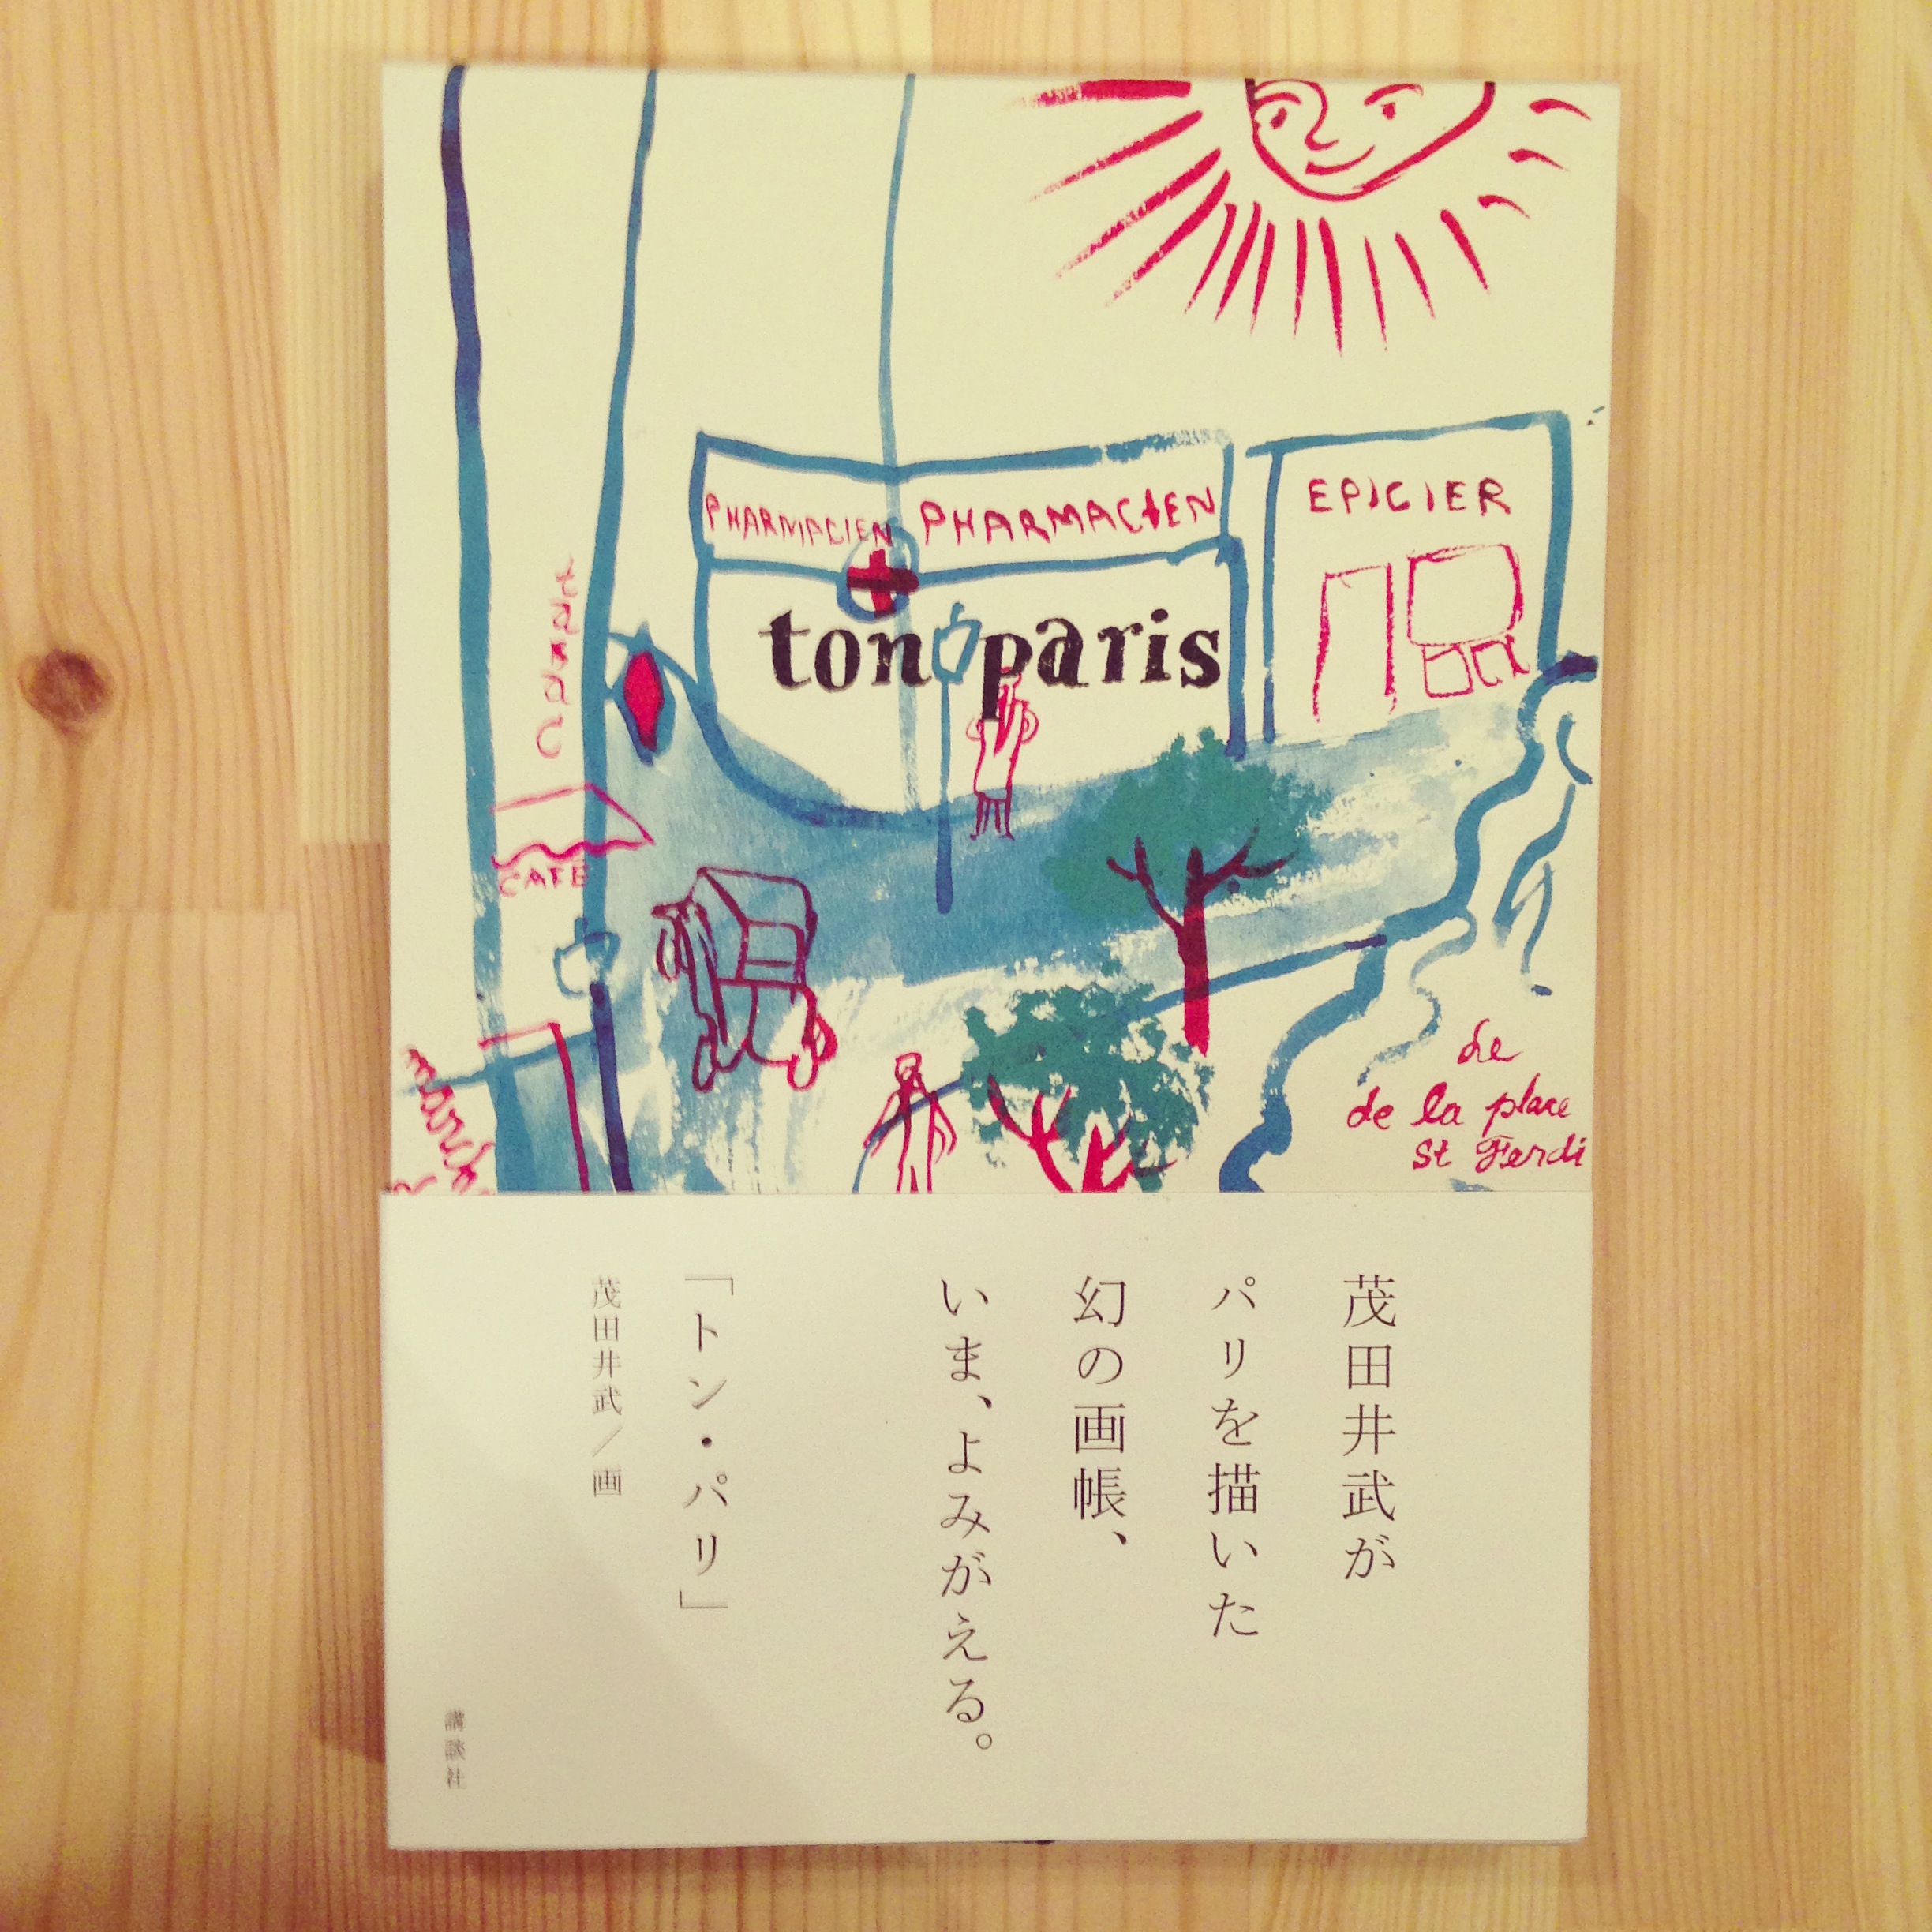 PHARMACIEN PHARMACIEN
EPICIER
ton paris
CAFE
de
de la place
St Ferdi
茂田井武が
パリを描いた
幻の画帳、
いま、よみがえる。
「トン・パリ」
茂田井武／画
講談社